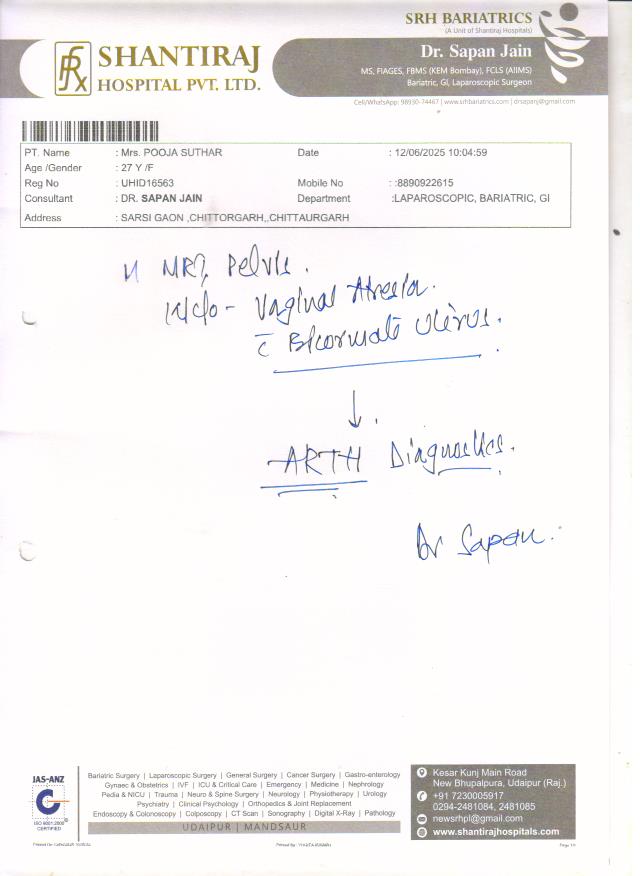 SRH BARIATRICS
(A Unit of Shantiraj Hospitals)
SHANTIRAJ
HOSPITAL PVT. LTD.
Dr. Sapan Jain
MS, FIAGES, FBMS (KEM Bombay), FCLS (AIIMS)
Bariatric, GI, Laparoscopic Surgeon
Cell/WhatsApp: 98930-74467 | www.srhbariatrics.com | drsapanj@gmail.com
PT. Name : Mrs. POOJA SUTHAR Date : 12/06/2025 10:04:59
Age /Gender : 27 Y /F
Reg No : UHID16563 Mobile No : :8890922615
Consultant : DR. SAPAN JAIN Department :LAPAROSCOPIC, BARIATRIC, GI
Address : SARSI GAON ,CHITTORGARH,,CHITTAURGARH
MRI Pelvis.
k/c/o - Vaginal Atresia.
c̄ Bicornuate Uterus.
↓
ARTH Diagnostics.
Dr Sapan
JAS-ANZ
ISO 9001:2000
CERTIFIED
Bariatric Surgery | Laparoscopic Surgery | General Surgery | Cancer Surgery | Gastro-enterology
Gynaec & Obstetrics | IVF | ICU & Critical Care | Emergency | Medicine | Nephrology
Pedia & NICU | Trauma | Neuro & Spine Surgery | Neurology | Physiotherapy | Urology
Psychiatry | Clinical Psychology | Orthopedics & Joint Replacement
Endoscopy & Colonoscopy | Colposcopy | CT Scan | Sonography | Digital X-Ray | Pathology
UDAIPUR | MANDSAUR
Kesar Kunj Main Road
New Bhupalpura, Udaipur (Raj.)
+91 7230005917
0294-2481084, 2481085
newsrhpl@gmail.com
www.shantirajhospitals.com